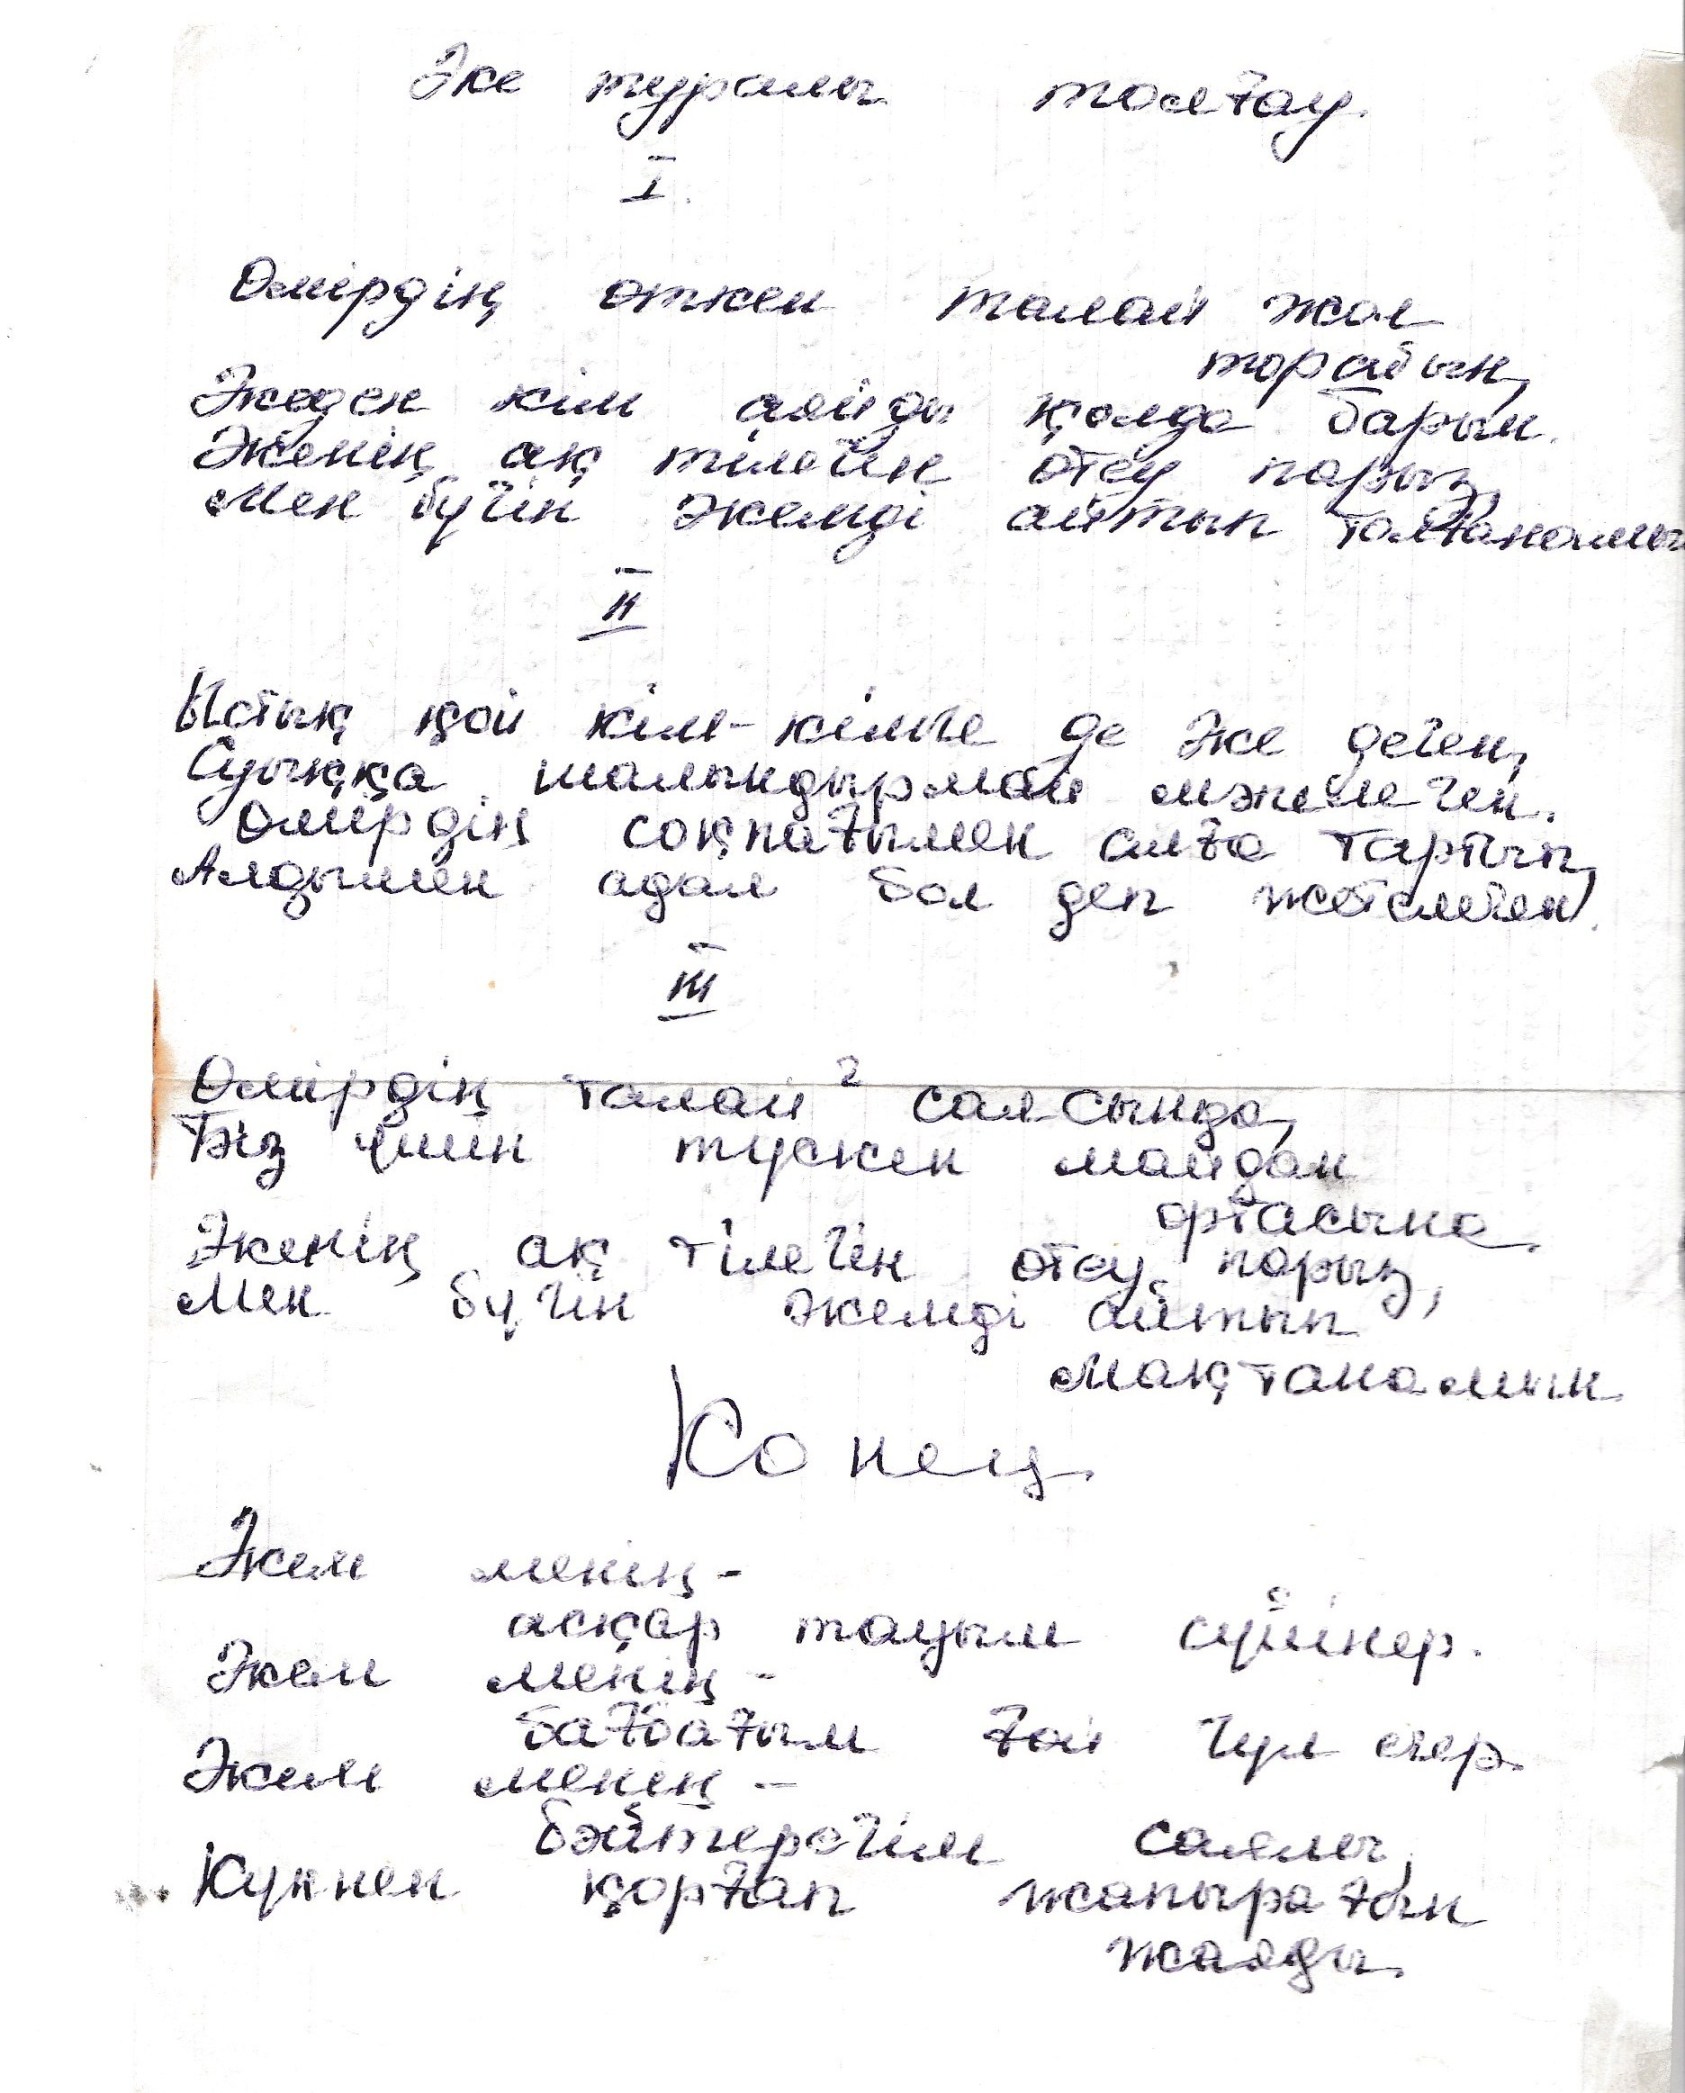 Әке туралы толғау.
I.
Өмірдің өткен талай жол
торабын,
Әкеден кім аяйды қолда барын.
Әкенің ақ тілегін өтеу парыз,
Мен бүгін әкемді айтып толғанамын
II
Ыстық қой кім-кімге де әке деген,
Суыққа шалындырмай мәпелеген.
Өмірдің соқпағымен алға тартып,
Алдымен адал бол деп жетелеген.
III
Өмірдің талай 2 сал-сында,
Біз үшін түскен майдан
ортасына.
Әкенің ақ тілегін өтеу парыз,
Мен бүгін әкемді айтып
мақтанамын.
Конец.
Әкем менің-
асқар тауым сүйінер.
Әкем менің-
бағбағым ғой гүл егер.
Әкем менің-
бәйтерегім саялы,
Күннен қорғап жапырағын
жаяды.